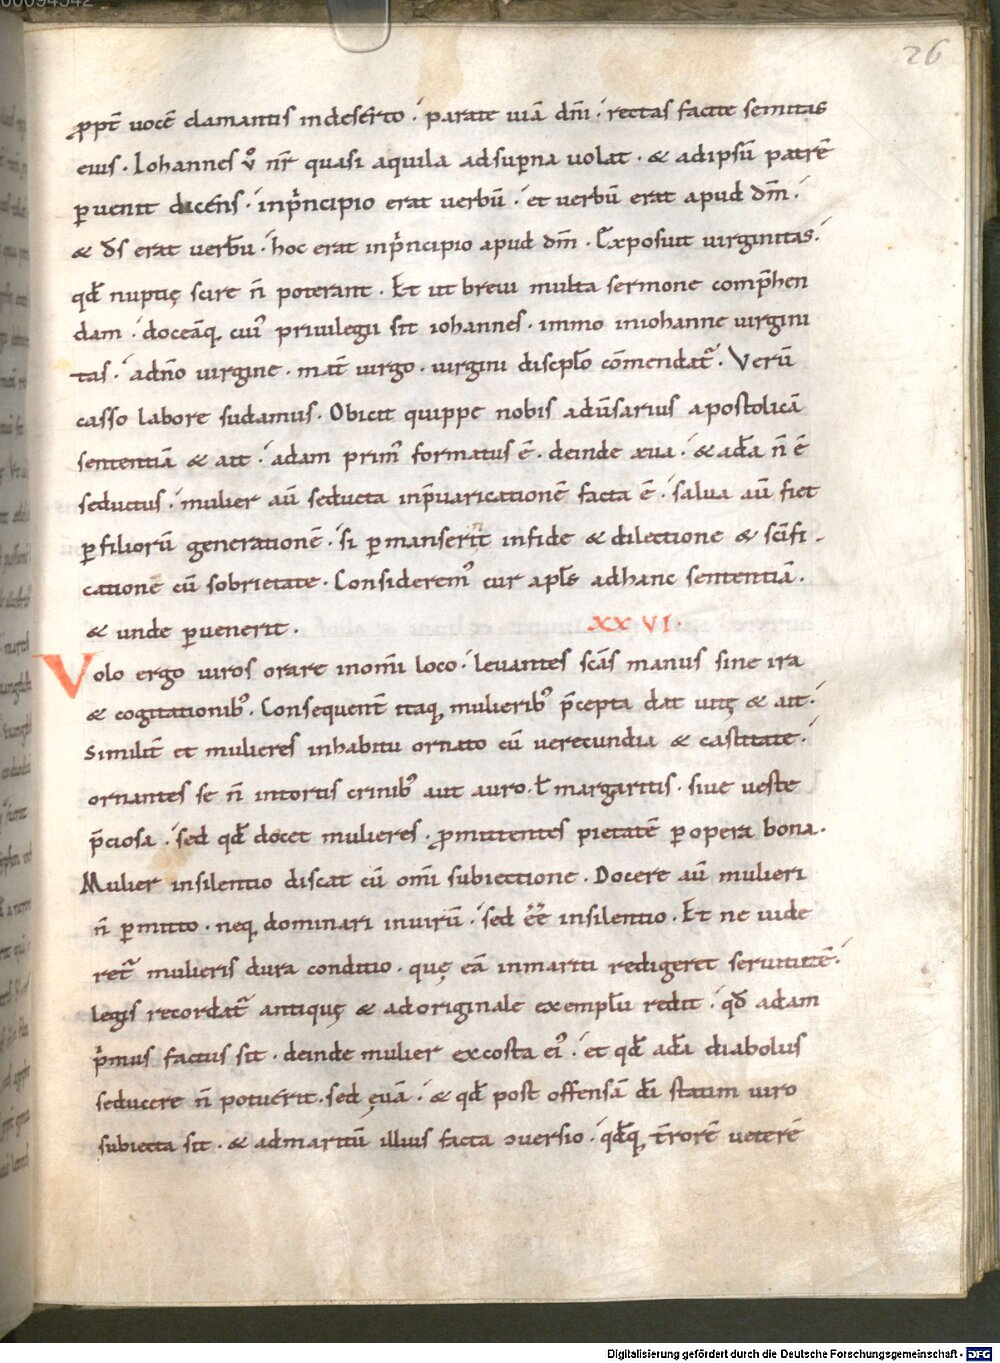 00094542
26
ꝓpt̄ uocē clamantis indeserto · parate uiā dn̄i · rectas facite semitas
eius · Iohannes ù nr̄ quasi aquila adsup̱na uolat · & adipsū patrē
ꝑuenit dicens · inp̄ncipio erat uerbū · et uerbū erat apud dm̄ ·
& ds̄ erat uerbū · hoc erat inp̄ncipio apud dm̄ · Exposuit uirginitas ·
qd̄ nuptię scire n̄ poterant · Et ut breui multa sermone comp̄hen
dam · doceāq; cui᾽ priuilegii sit iohannes · immo iniohanne uirgini
tas · adn̄o uirgine · mat̄ uirgo · uirgini discipl̄o cōmendat᷑ · Verū
casso labore sudamus · Obicit quippe nobis adūsarius apostolicā
sententiā & ait · adam prim᾽ formatus ē · deinde æua · & adā n̄ ē
seductus · mulier aū seducta inp̄uaricationē facta ē · salua aū fiet
ꝑfiliorū generationē · si ꝑmanserint infide & dilectione & sc̄ifi-
catione cū sobrietate · Considerem᾽ cur apl̄s adhanc sententiā ·
& unde ꝑuenerit · XXVI ·
Volo ergo uiros orare inom̄i loco · leuantes sc̄as manus sine ira
& cogitationib᾽ · Consequent̄ itaq; mulierib᾽ p̄cepta dat uitę & ait ·
Similit̄ et mulieres inhabitu ornato cū uerecundia & castitate ·
ornantes se n̄ intortis crinib᾽ aut auro · ł margaritis · siue ueste
p̄ciosa · sed qd̄ docet mulieres · ꝓmittentes pietatē ꝑopera bona ·
Mulier insilentio discat cū om̄i subiectione · Docere aū mulieri
n̄ ꝑmitto · neq; dominari inuirū · sed ēē insilentio · Et ne uide
ret᷑ mulieris dura conditio · quę eā inmariti redigeret seruitutē ·
legis recordat᷑ antiquę & adoriginale exemplū redit · qd̄ adam
p̄mus factus sit · deinde mulier excosta ei᾽ · et qd̄ adā diabolus
seducere n̄ potuerit · sed ęuā · & qd̄ post offensā dī statim uiro
subiecta sit · & admaritū illius facta ɔuersio · qd̄q; t̄rorē ueterē
Digitalisierung gefördert durch die Deutsche Forschungsgemeinschaft - DFG